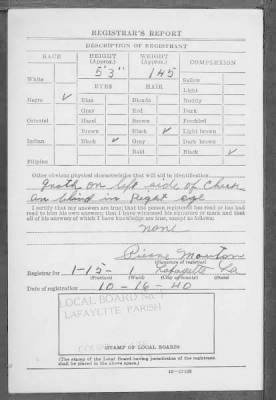 REGISTRAR'S REPORT
DESCRIPTION OF REGISTRANT
RACE HEIGHT (Approx.) WEIGHT (Approx.) COMPLEXION
5'3" 145
White Sallow
EYES HAIR Light
Negro ✓ Blue Blonde Ruddy
Gray Red Dark
Oriental Hazel Brown Freckled
Brown Black ✓ Light brown
Indian Black ✓ Gray Dark brown
Bald Black ✓
Filipino
Other obvious physical characteristics that will aid in identification
Groth on left side of Cheek
an blind in Right eye
I certify that my answers are true; that the person registered has read or has had read to him his own answers; that I have witnessed his signature or mark and that all of his answers of which I have knowledge are true, except as follows:
None
Mouton
(Signature of registrar)
Registrar for 1-15- 1 Lafayette La
(Precinct) (Ward) (City or county) (State)
Date of registration 10-16-40
LOCAL BOARD No. 1
LAFAYETTE PARISH
(STAMP OF LOCAL BOARD)
(The stamp of the Local Board having jurisdiction of the registrant shall be placed in the above space.)